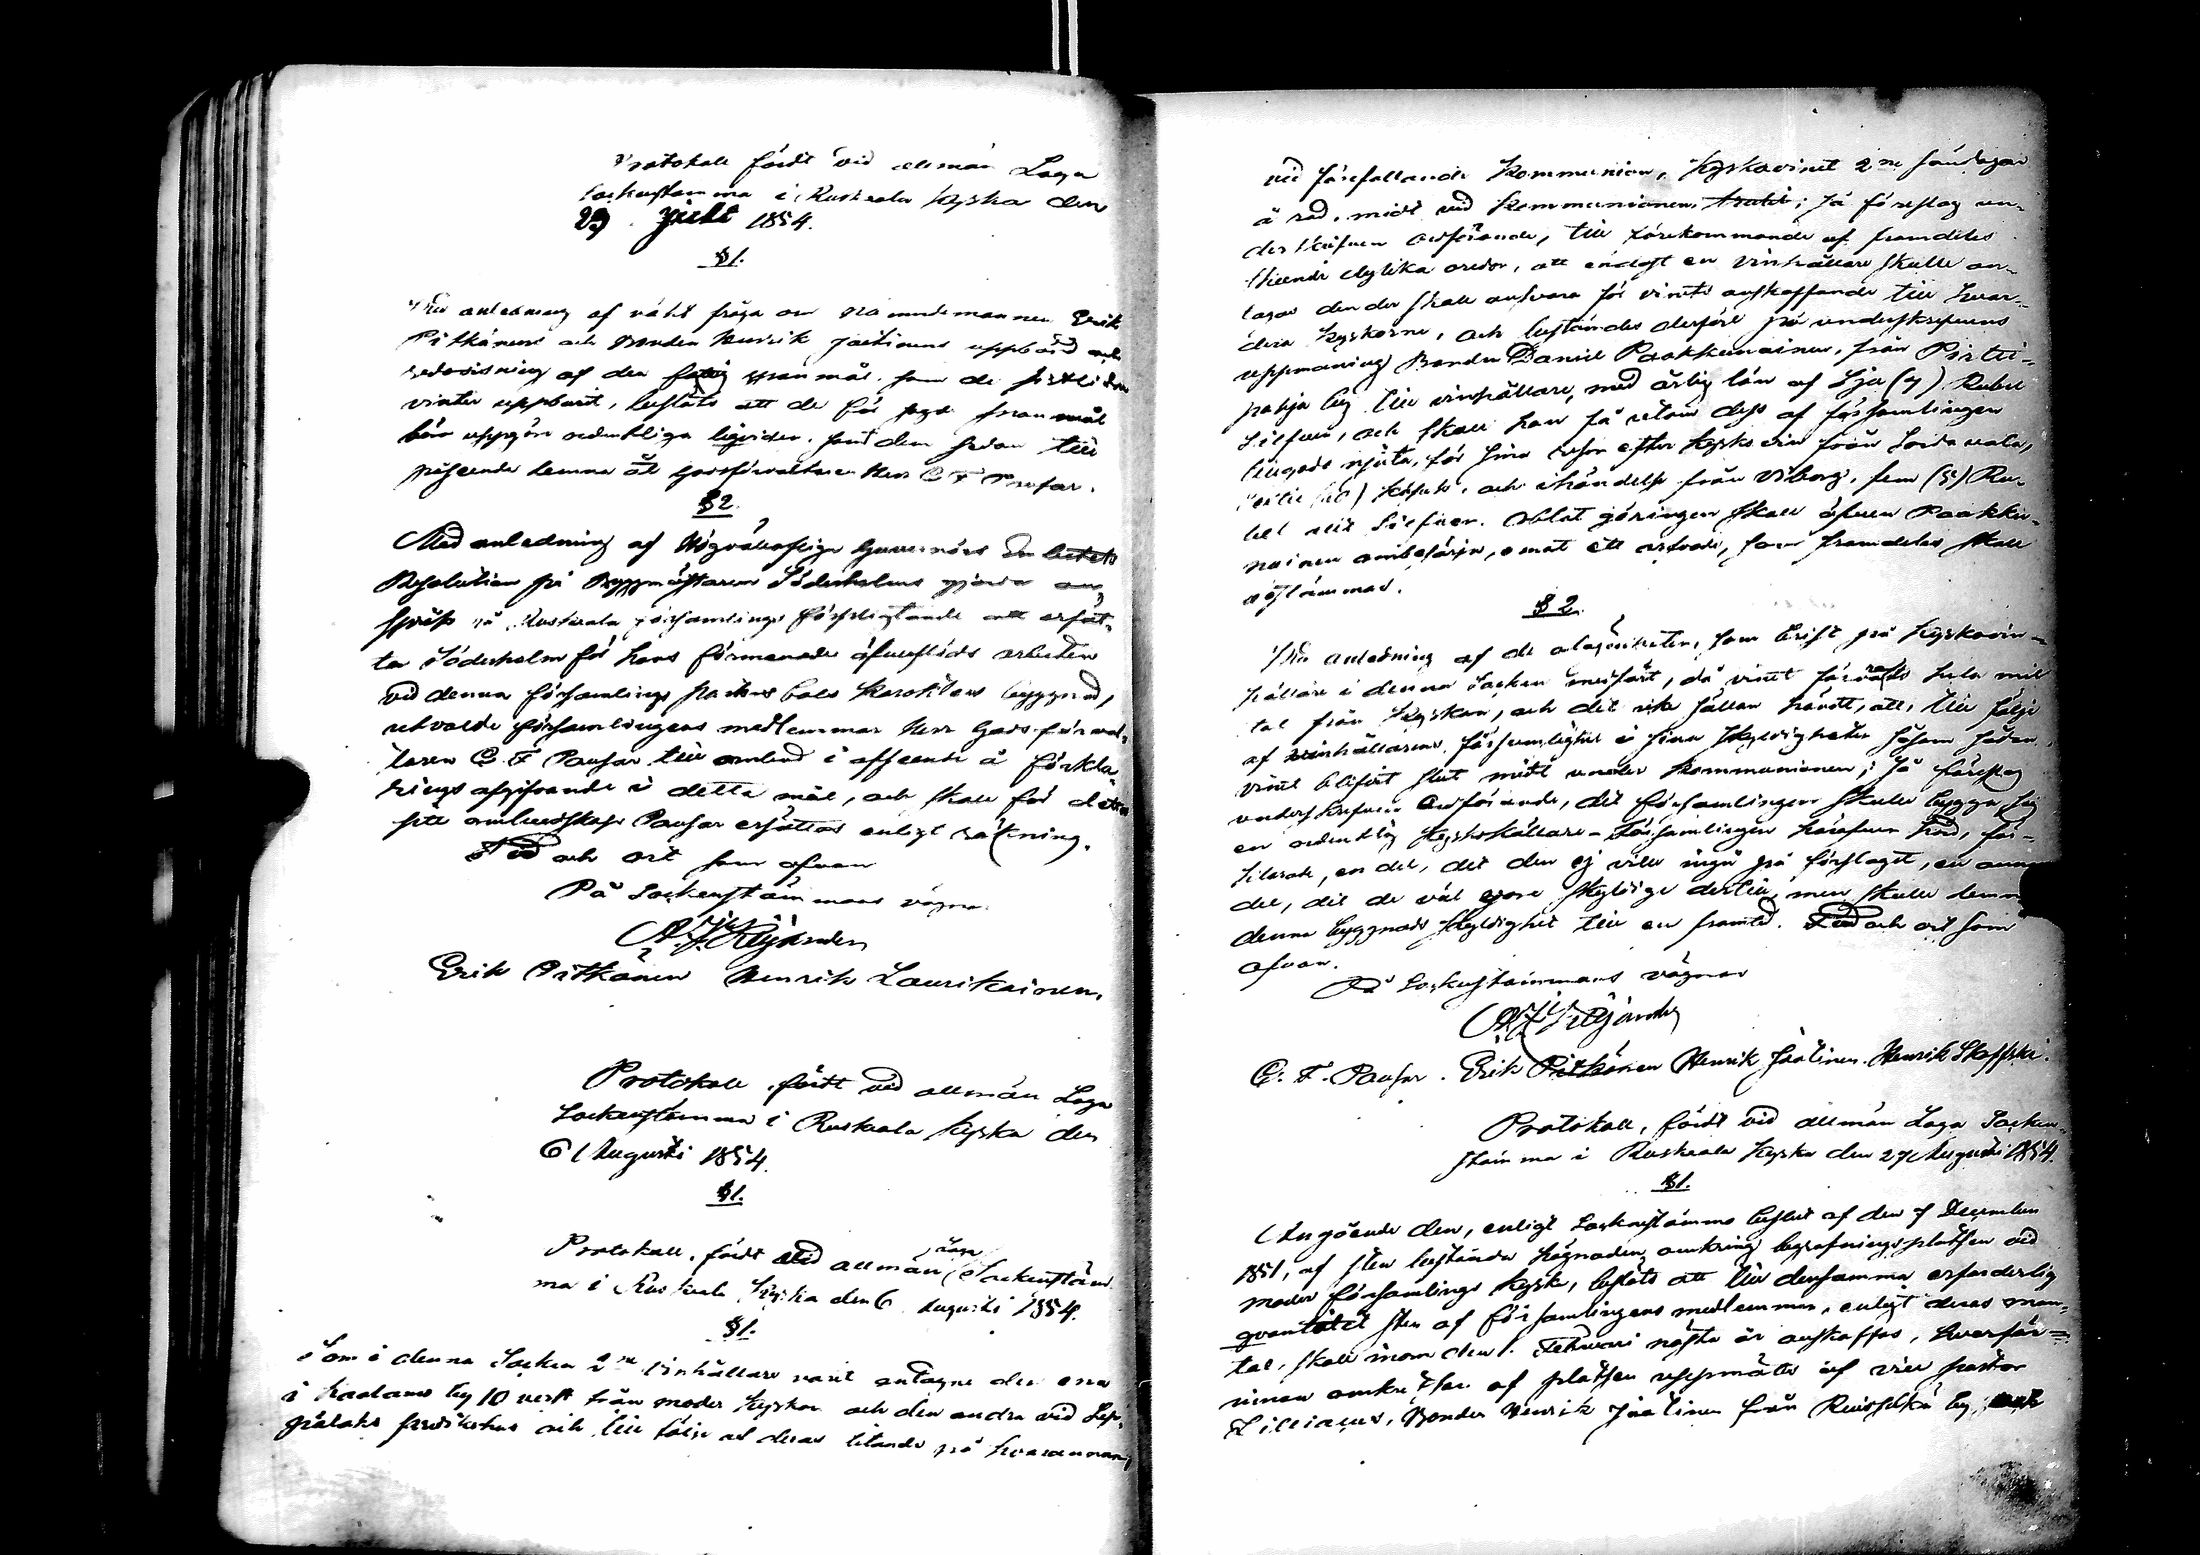 Protokoll fördt vid allmän Laga
Sockenstämma i Ruskeala kyrka den
29 Julii 1854.
§1.
Med anledning af väkt fråga om Nämndemannen Erik
Pitkänens och Bonden Henrik Jäätinens uppbörd och
redovisning af den spanmål, som de sistlidne
vinter uppburit, beslöts att de för spanmål
böra uppgöra ordentliga likvider, samt den sedan till
lemna åt godsförvaltaren Herr C F Paufar.
§2.
Med anledning af Högvälborflige Guvernörs Embetets
Resolution på Byggmästaren Söderholms gjorda an-
språk på Ruskeala församlings förpligtande att ersät-
ta Söderholm för hans förmenade öfverflöds arbeten
vid denna församlings pastors bols karakters byggnad,
utvalde församlingens medlemmar Herr Godsförval-
taren C. F Paufar till ombud i afseende å förkla-
rings afgifvande i detta mål, och skall för detta
sitt ombudskap Paufar ersättas enligt räkning.
Tid och ort som ofvan
På Sockenstämmans vägnar
Erik Pitkänen Henrik Laurikainen.
Protokoll, fördt vid allmän Laga
Sockenstämma i Ruskeala kyrka den
6 Augusti 1854.
§1.
Protokoll, fördt vid allmän Laga Sockenstäm
ma i Ruskeala Kyrka den 6 Augusti 1854.
§1.
Som i denna Socken 2ne Vinhållare varit antagne den ena
i Kaalamo by 10 verst från moder kyrkan och den andra vid Lep-
och till följe af deras litande på hvarannan,
vid förefallande Kommunion, Kyrkovinet 2ne söndagar
å rad, midt vid Kommunionen, ; så föreslog un-
derskrifven ordförande, till förekommande af framdeles
skeende dylika oredor, att endast en vinhållare skulle an-
tagas den der skall ansvara för vinets anskaffande till hvar-
dera kyrkorne, och bestämdes derföre på underskrefvens
uppmaning Bonden Daniel Paakkunainen, från Pirtti-
pohja by till vinhållare, med årlig lön af Sju (7) Rubel
Silfver, och skall han få utom dess af församlingen
tillgodo njuta, för sina resor efter kyrkovin från Sordavala,
kopek, och ihändelse från Viborg, fem (5) Ru-
bel Silfver. Oblat göringen skall äfven Paakku-
nainen ombesörja, emot ett arfvode, som framdeles skall
bestämmas.
§2.
Med anledning af de olägenheter, som brist på kyrkovin-
källare i denna Socken medfört, då vinet förvarats hela mil
tal från kyrkan, och det icke sällan händt, att, till följe
af vinhållarens försumlighet i sina skyldigheter såsom sådan
vinet blifvit slut midt under Kommunionen; så föreslog
underskrefven Ordförande, det församlingen skulle bygga sig
en ordentlig kyrkokällare. Församlingen häröfver hörd, för-
klarade, en del, det den ej ville ingå på förslaget, en annan
del, det de väl voro skyldige dertill, men skulle lemna
denna byggnads skyldighet till en framtid. Tid och ort som
ofvan.
På Sockenstämmans vägnar
C. F. Paufar. Erik Pitkänen Henrik Jäätinen. Henrik Skopski.
Protokoll, fördt vid allmän Laga Socken-
stämma i Ruskeala kyrka den 27 Augusti 1854.
§1.
Angående den, enligt Sockenstämmo beslut af den 7 December
1851, af sten bestämda hägnaden omkring begrafningsplatsen vid
moder församlings kyrka, beslöts att till densamma erforderlig
qvantitet sten af församlingens medlemmar, enligt deras man-
tal, skall inom den 1. Februari nästa år anskaffas, hvarför-
innan omkretsen af platsen uppmätes af vice pastor
Lilliacus, Bonden Henrik Jäätinen från Ruiselkä by, och